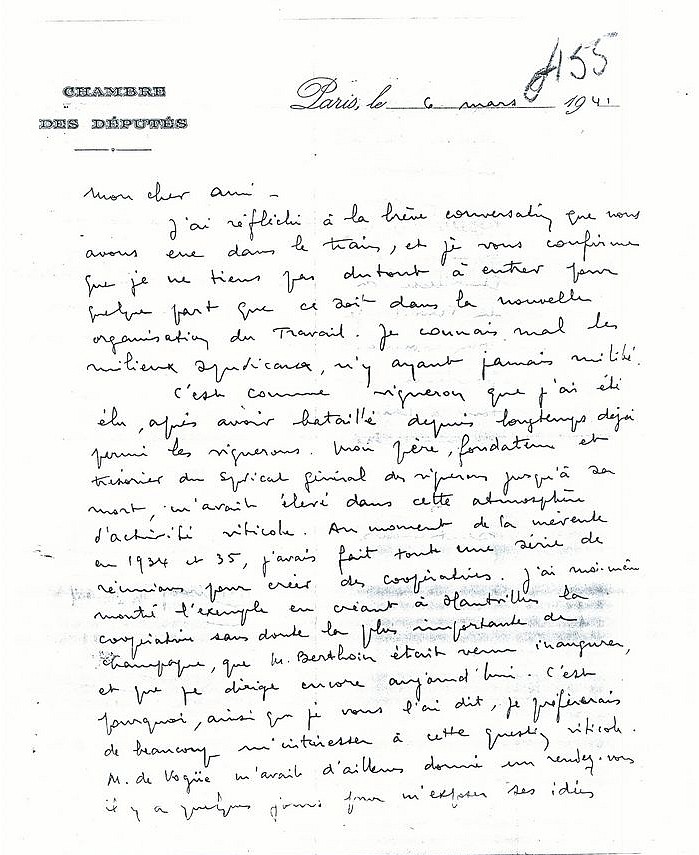 155
CHAMBRE
DES DÉPUTÉS
Paris, le 6 mars 1941
Mon cher ami -
J'ai réfléchi à la brève conversation que nous
avons eue dans le train, et je vous confirme
que je ne tiens pas du tout à entrer pour
quelque part que ce soit dans la nouvelle
organisation du Travail. Je connais mal les
milieux syndicaux, n'y ayant jamais milité.
C'est comme vigneron que j'ai été
élu, après avoir bataillé depuis longtemps déjà
parmi les vignerons. Mon père, fondateur et
trésorier du Syndicat général des vignerons jusqu'à sa
mort, m'avait élevé dans cette atmosphère
d'activité viticole. Au moment de la mévente
en 1934 et 35, j'avais fait toute une série de
réunions pour créer des coopératives. J'ai moi-même
montré l'exemple en créant à Mantrilles la
coopérative sans doute la plus importante de
Champagne, que M. Berthoin était venu inaugurer,
et que je dirige encore aujourd'hui. C'est
pourquoi, ainsi que je vous l'ai dit, je préférerais
de beaucoup m'intéresser à cette question viticole.
M. de Vogüe m'avait d'ailleurs donné un rendez-vous
il y a quelques jours pour m'exposer ses idées